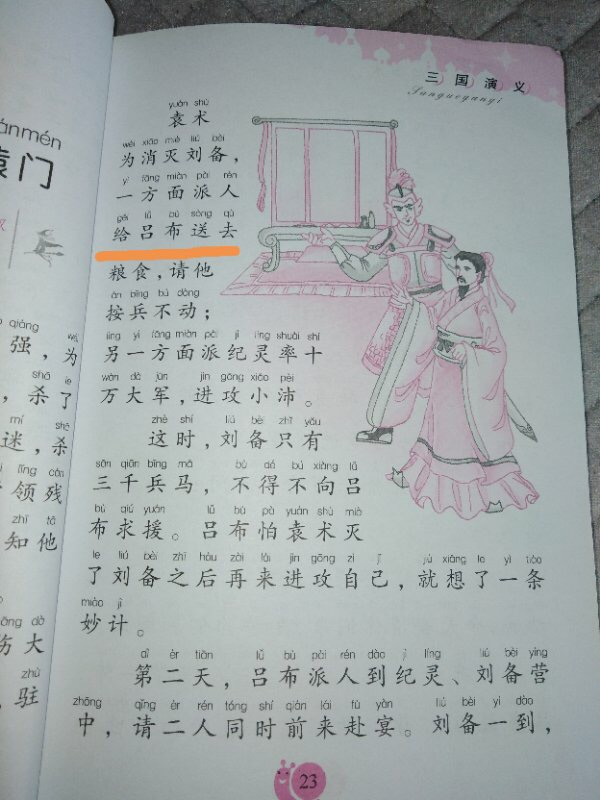 ánmén
门
qiáng wéi
强，为
shā le
，杀了
mí shā
迷，杀
lǐng cán
领残
zhī tā
知他
dà
伤大
zhù
，驻
三国演义
Sanguoyanyi
yuán shù
袁术
wèi xiāo miè liú bèi
为消灭刘备，
yì fāng miàn pài rén
一方面派人
gěi lǚ bù sòng qù
给吕布送去
粮食，请他
àn bīng bú dòng
按兵不动；
lìng yì fāng miàn pài jǐ líng shuài shí
另一方面派纪灵率十
wàn dà jūn jìn gōng xiǎo pèi
万大军，进攻小沛。
zhè shí liú bèi zhǐ yǒu
这时，刘备只有
sān qiān bīng mǎ bù dé bú xiàng lǚ
三千兵马，不得不向吕
bù qiú yuán lǚ bù pà yuán shù miè
布求援。吕布怕袁术灭
le liú bèi zhī hòu zài lái jìn gōng zì jǐ jiù xiǎng le yì tiáo
了刘备之后再来进攻自己，就想了一条
miào jì
妙计。
dì èr tiān lǚ bù pài rén dào jǐ líng liú bèi yíng
第二天，吕布派人到纪灵、刘备营
zhōng qǐng èr rén tóng shí qián lái fù yàn liú bèi yí dào
中，请二人同时前来赴宴。刘备一到，
23